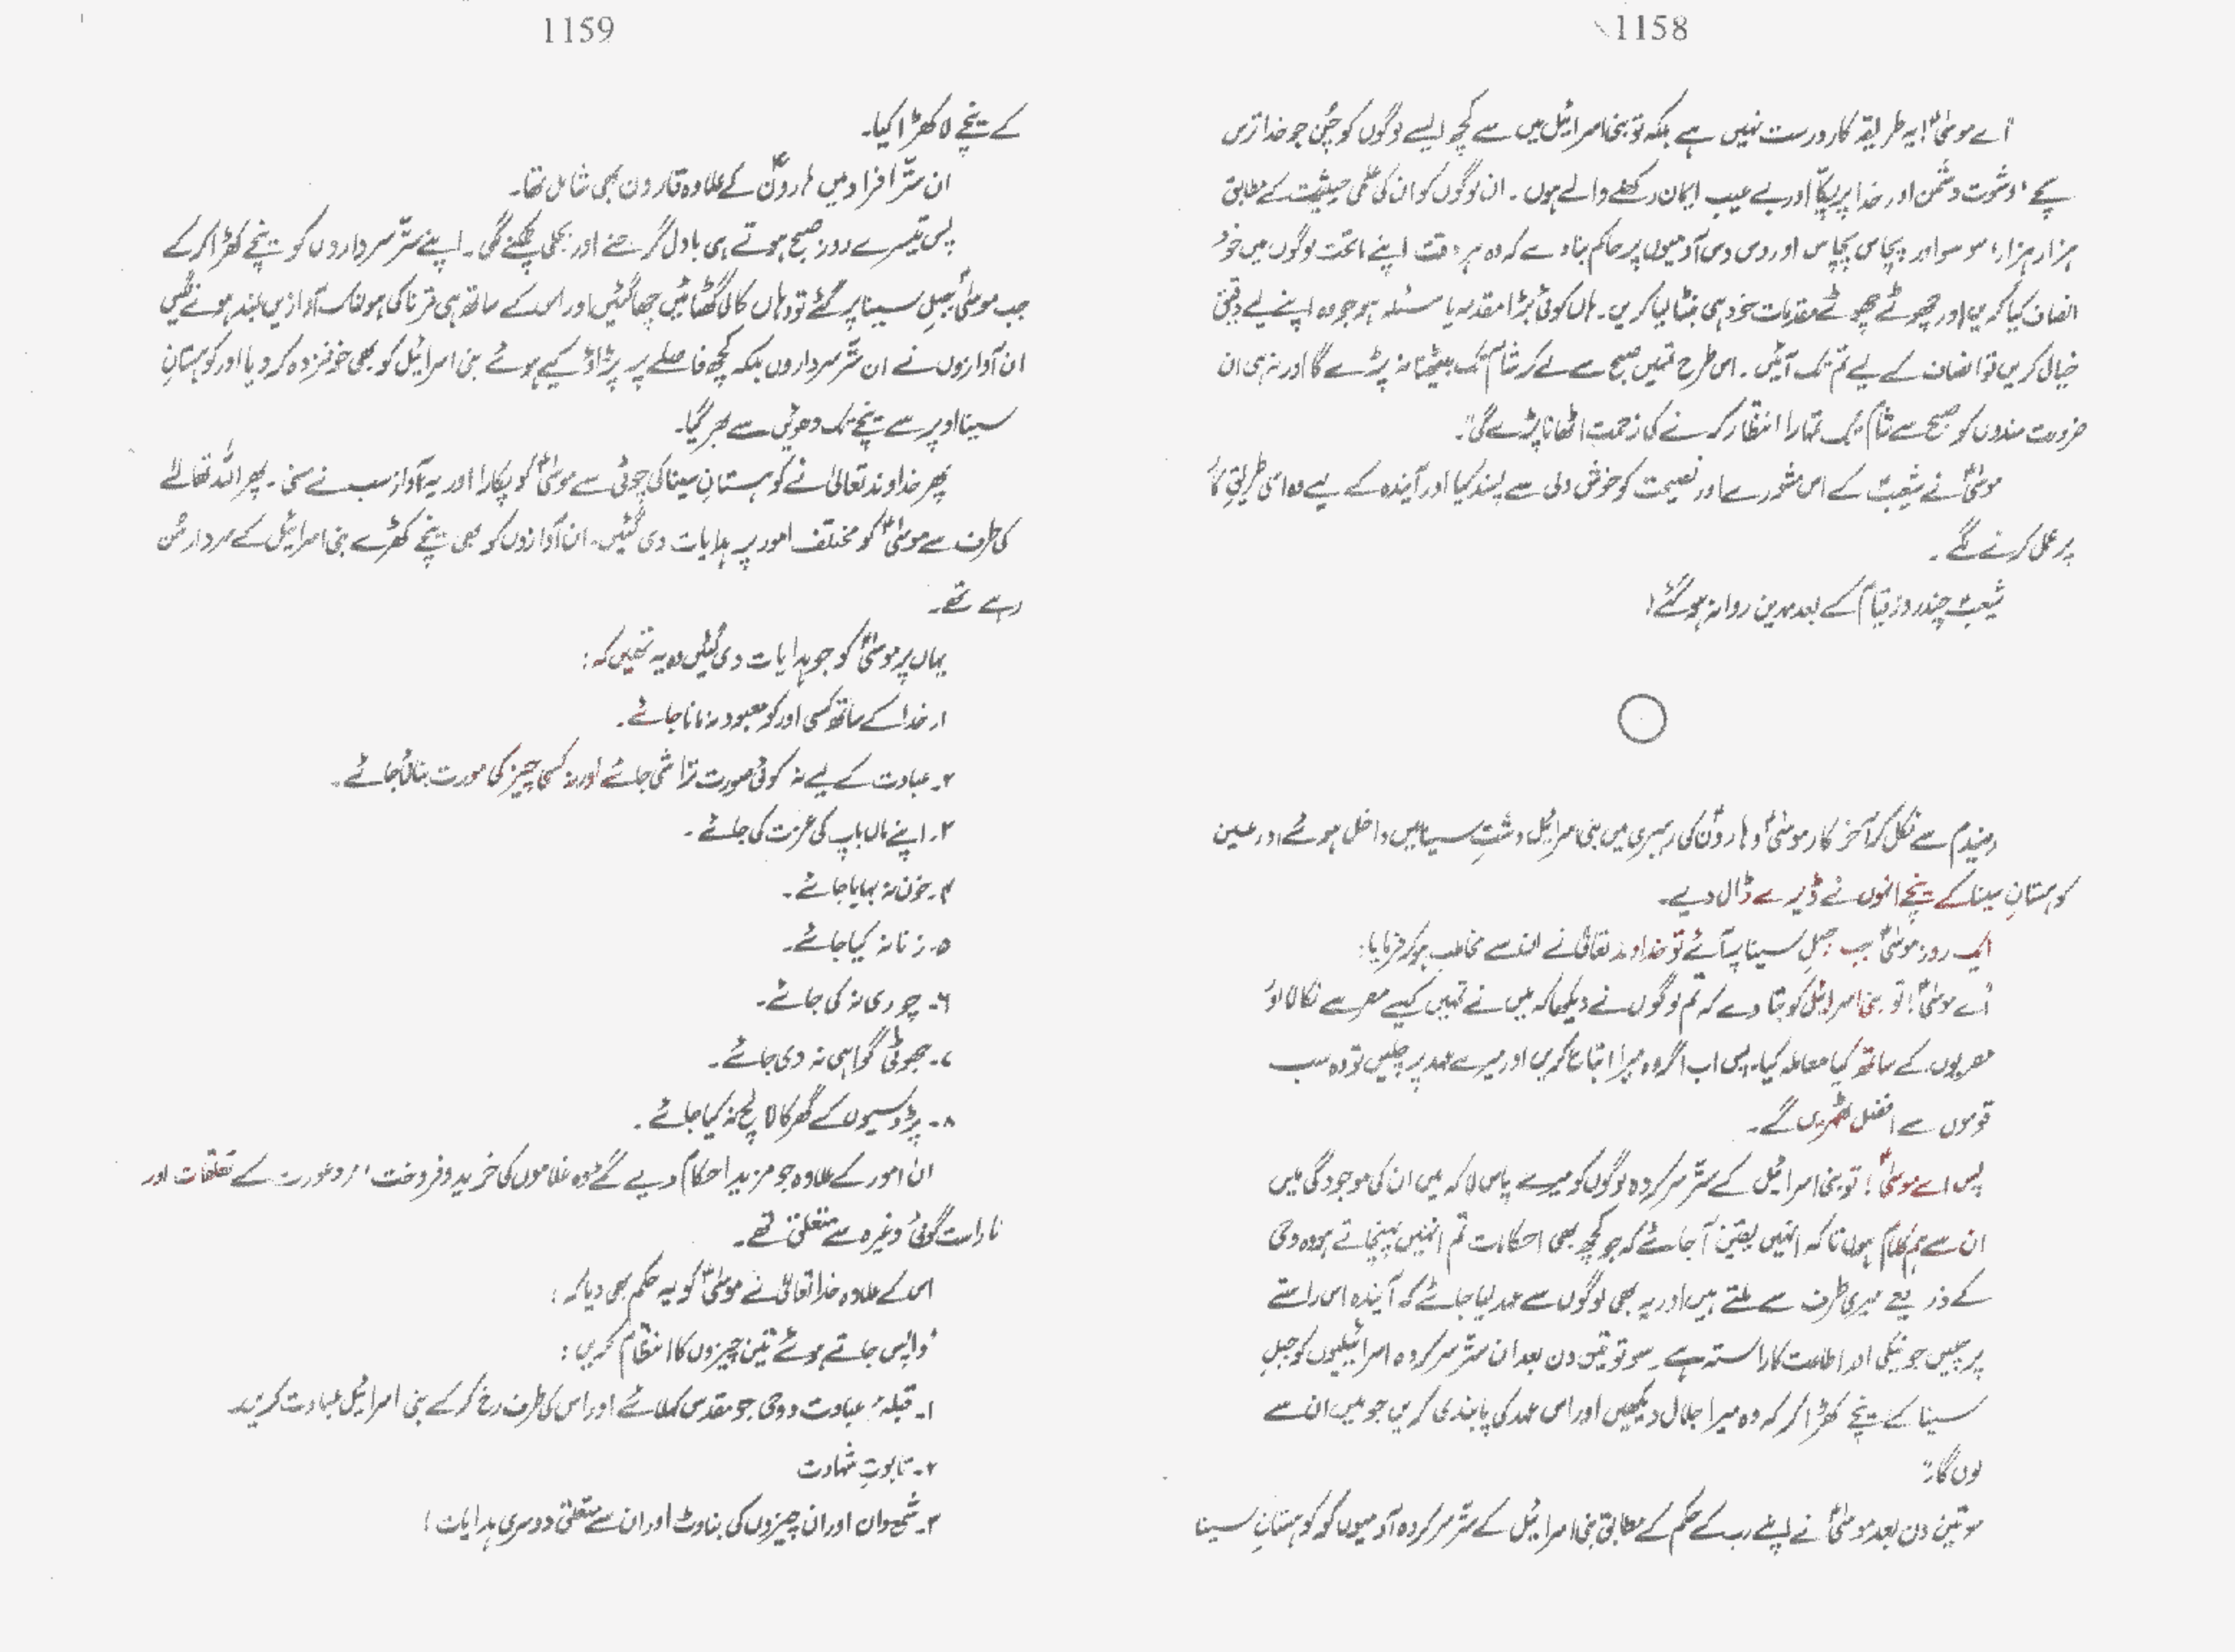 1158
"اے موسیٰؑ! یہ طریقہ کار درست نہیں ہے بلکہ تو بنی اسرائیل میں سے کچھ ایسے لوگوں کو چُن جو خدا ترس
سچے، رشوت دشمن اور خدا پر پکّا اور بے عیب ایمان رکھنے والے ہوں۔ ان لوگوں کو ان کی علمی حیثیت کے مطابق
ہزار ہزار، سو سو اور پچاس پچاس اور دس دس آدمیوں پر حاکم بنا دے کہ وہ ہر وقت اپنے ماتحت لوگوں میں خود
انصاف کیا کریں اور چھوٹے چھوٹے مقدمات خود ہی نبٹا لیا کریں۔ ہاں کوئی بڑا مقدمہ یا مسئلہ ہو جو وہ اپنے لیے دقیق
خیال کریں تو انصاف کے لیے تم تک آئیں۔ اس طرح تمہیں صبح سے لے کر شام تک بیٹھنا نہ پڑے گا اور نہ ہی ان
ضرورت مندوں کو صبح سے شام تک تمہارا انتظار کرنے کی زحمت اٹھانا پڑے گی"۔
موسیٰؑ نے شیعبؑ کے اس مشورے اور نصیحت کو خوش دلی سے پسند کیا اور آیندہ کے لیے وہ اسی طریقِ کار
پر عمل کرنے لگے۔
شیعبؑ چند روز قیام کے بعد مدین روانہ ہو گئے!
رفیدم سے نکل کر آخر کار موسیٰؑ و ہارونؑ کی رہبری میں بنی اسرائیل دشتِ سینا میں داخل ہوئے اور عین
کوہستانِ سینا کے نیچے انہوں نے ڈیرے ڈال دیے۔
ایک روز موسیٰؑ جب جبلِ سینا پر آئے تو خداوند تعالیٰ نے ان سے مخاطب ہو کر فرمایا:
"اے موسیٰؑ! تو بنی اسرائیل کو بتا دے کہ تم لوگوں نے دیکھا کہ میں نے تمہیں کیسے مصر سے نکالا اور
مصریوں کے ساتھ کیا معاملہ کیا۔ پس اب اگر وہ میرا اتباع کریں اور میرے عہد پر چلیں تو وہ سب
قوموں سے افضل ٹھہریں گے۔
پس اے موسیٰؑ! تو بنی اسرائیل کے ستّر سرکردہ لوگوں کو میرے پاس لا کہ میں ان کی موجودگی میں
ان سے ہم کلام ہوں تاکہ انہیں یقین آ جائے کہ جو کچھ بھی احکامات تم انہیں پہنچاتے ہو وہ وحی
کے ذریعے میری طرف سے ملتے ہیں اور یہ بھی لوگوں سے عہد لیا جائے کہ آیندہ اس راستے
پر چلیں جو نیکی اور اطاعت کا راستہ ہے۔ سو تو تین دن بعد ان ستّر سرکردہ اسرائیلیوں کو جبلِ
سینا کے نیچے کھڑا کر کہ وہ میرا جلال دیکھیں اور اس عہد کی پابندی کریں جو میں ان سے
لوں گا"۔
سو تین دن بعد موسیٰؑ نے اپنے رب کے حکم کے مطابق بنی اسرائیل کے ستّر سرکردہ آدمیوں کو کوہستانِ سینا
1159
کے نیچے لا کھڑا کیا۔
ان ستّر افراد میں ہارونؑ کے علاوہ قارون بھی شامل تھا۔
پس تیسرے روز صبح ہوتے ہی بادل گرجنے اور بجلی چمکنے لگی۔ اپنے ستّر سرداروں کو نیچے کھڑا کر کے
جب موسیٰؑ جبلِ سینا پر گئے تو وہاں کالی گھٹائیں چھا گئیں اور اس کے ساتھ ہی قرنا کی ہولناک آوازیں بلند ہونے لگیں
ان آوازوں نے ان ستّر سرداروں بلکہ کچھ فاصلے پر پڑاؤ کیے ہوئے بنی اسرائیل کو بھی خوفزدہ کر دیا اور کوہستانِ
سینا اوپر سے نیچے تک دھوئیں سے بھر گیا۔
پھر خداوند تعالیٰ نے کوہستانِ سینا کی چوٹی سے موسیٰؑ کو پکارا اور یہ آواز سب نے سنی۔ پھر اللہ تعالیٰ
کی طرف سے موسیٰؑ کو مختلف امور پر ہدایات دی گئیں۔ ان آوازوں کو بھی نیچے کھڑے بنی اسرائیل کے سردار سُن
رہے تھے۔
یہاں پر موسیٰؑ کو جو ہدایات دی گئیں وہ یہ تھیں کہ:
۱۔ خدا کے ساتھ کسی اور کو معبود نہ مانا جائے۔
۲۔ عبادت کے لیے نہ کوئی صورت تراشی جائے اور نہ کسی چیز کی مورت بنائی جائے۔
۳۔ اپنے ماں باپ کی عزت کی جائے۔
۴۔ خون نہ بہایا جائے۔
۵۔ زنا نہ کیا جائے۔
۶۔ چوری نہ کی جائے۔
۷۔ جھوٹی گواہی نہ دی جائے۔
۸۔ پڑوسیوں کے گھر کا لالچ نہ کیا جائے۔
ان امور کے علاوہ جو مزید احکام دیے گئے وہ غلاموں کی خرید و فروخت، مرد عورت کے تعلقات اور
ناراست گوئی وغیرہ سے متعلق تھے۔
اس کے علاوہ خدا تعالیٰ نے موسیٰؑ کو یہ حکم بھی دیا کہ:
"واپس جاتے ہوئے تین چیزوں کا انتظام کریں:
۱۔ قبلہ عبادت و وحی جو مقدس کہلائے اور اس کی طرف رخ کر کے بنی اسرائیل عبادت کریں۔
۲۔ تابوتِ شہادت
۳۔ شمعدان اور ان چیزوں کی بناوٹ اور ان سے متعلق دوسری ہدایات!